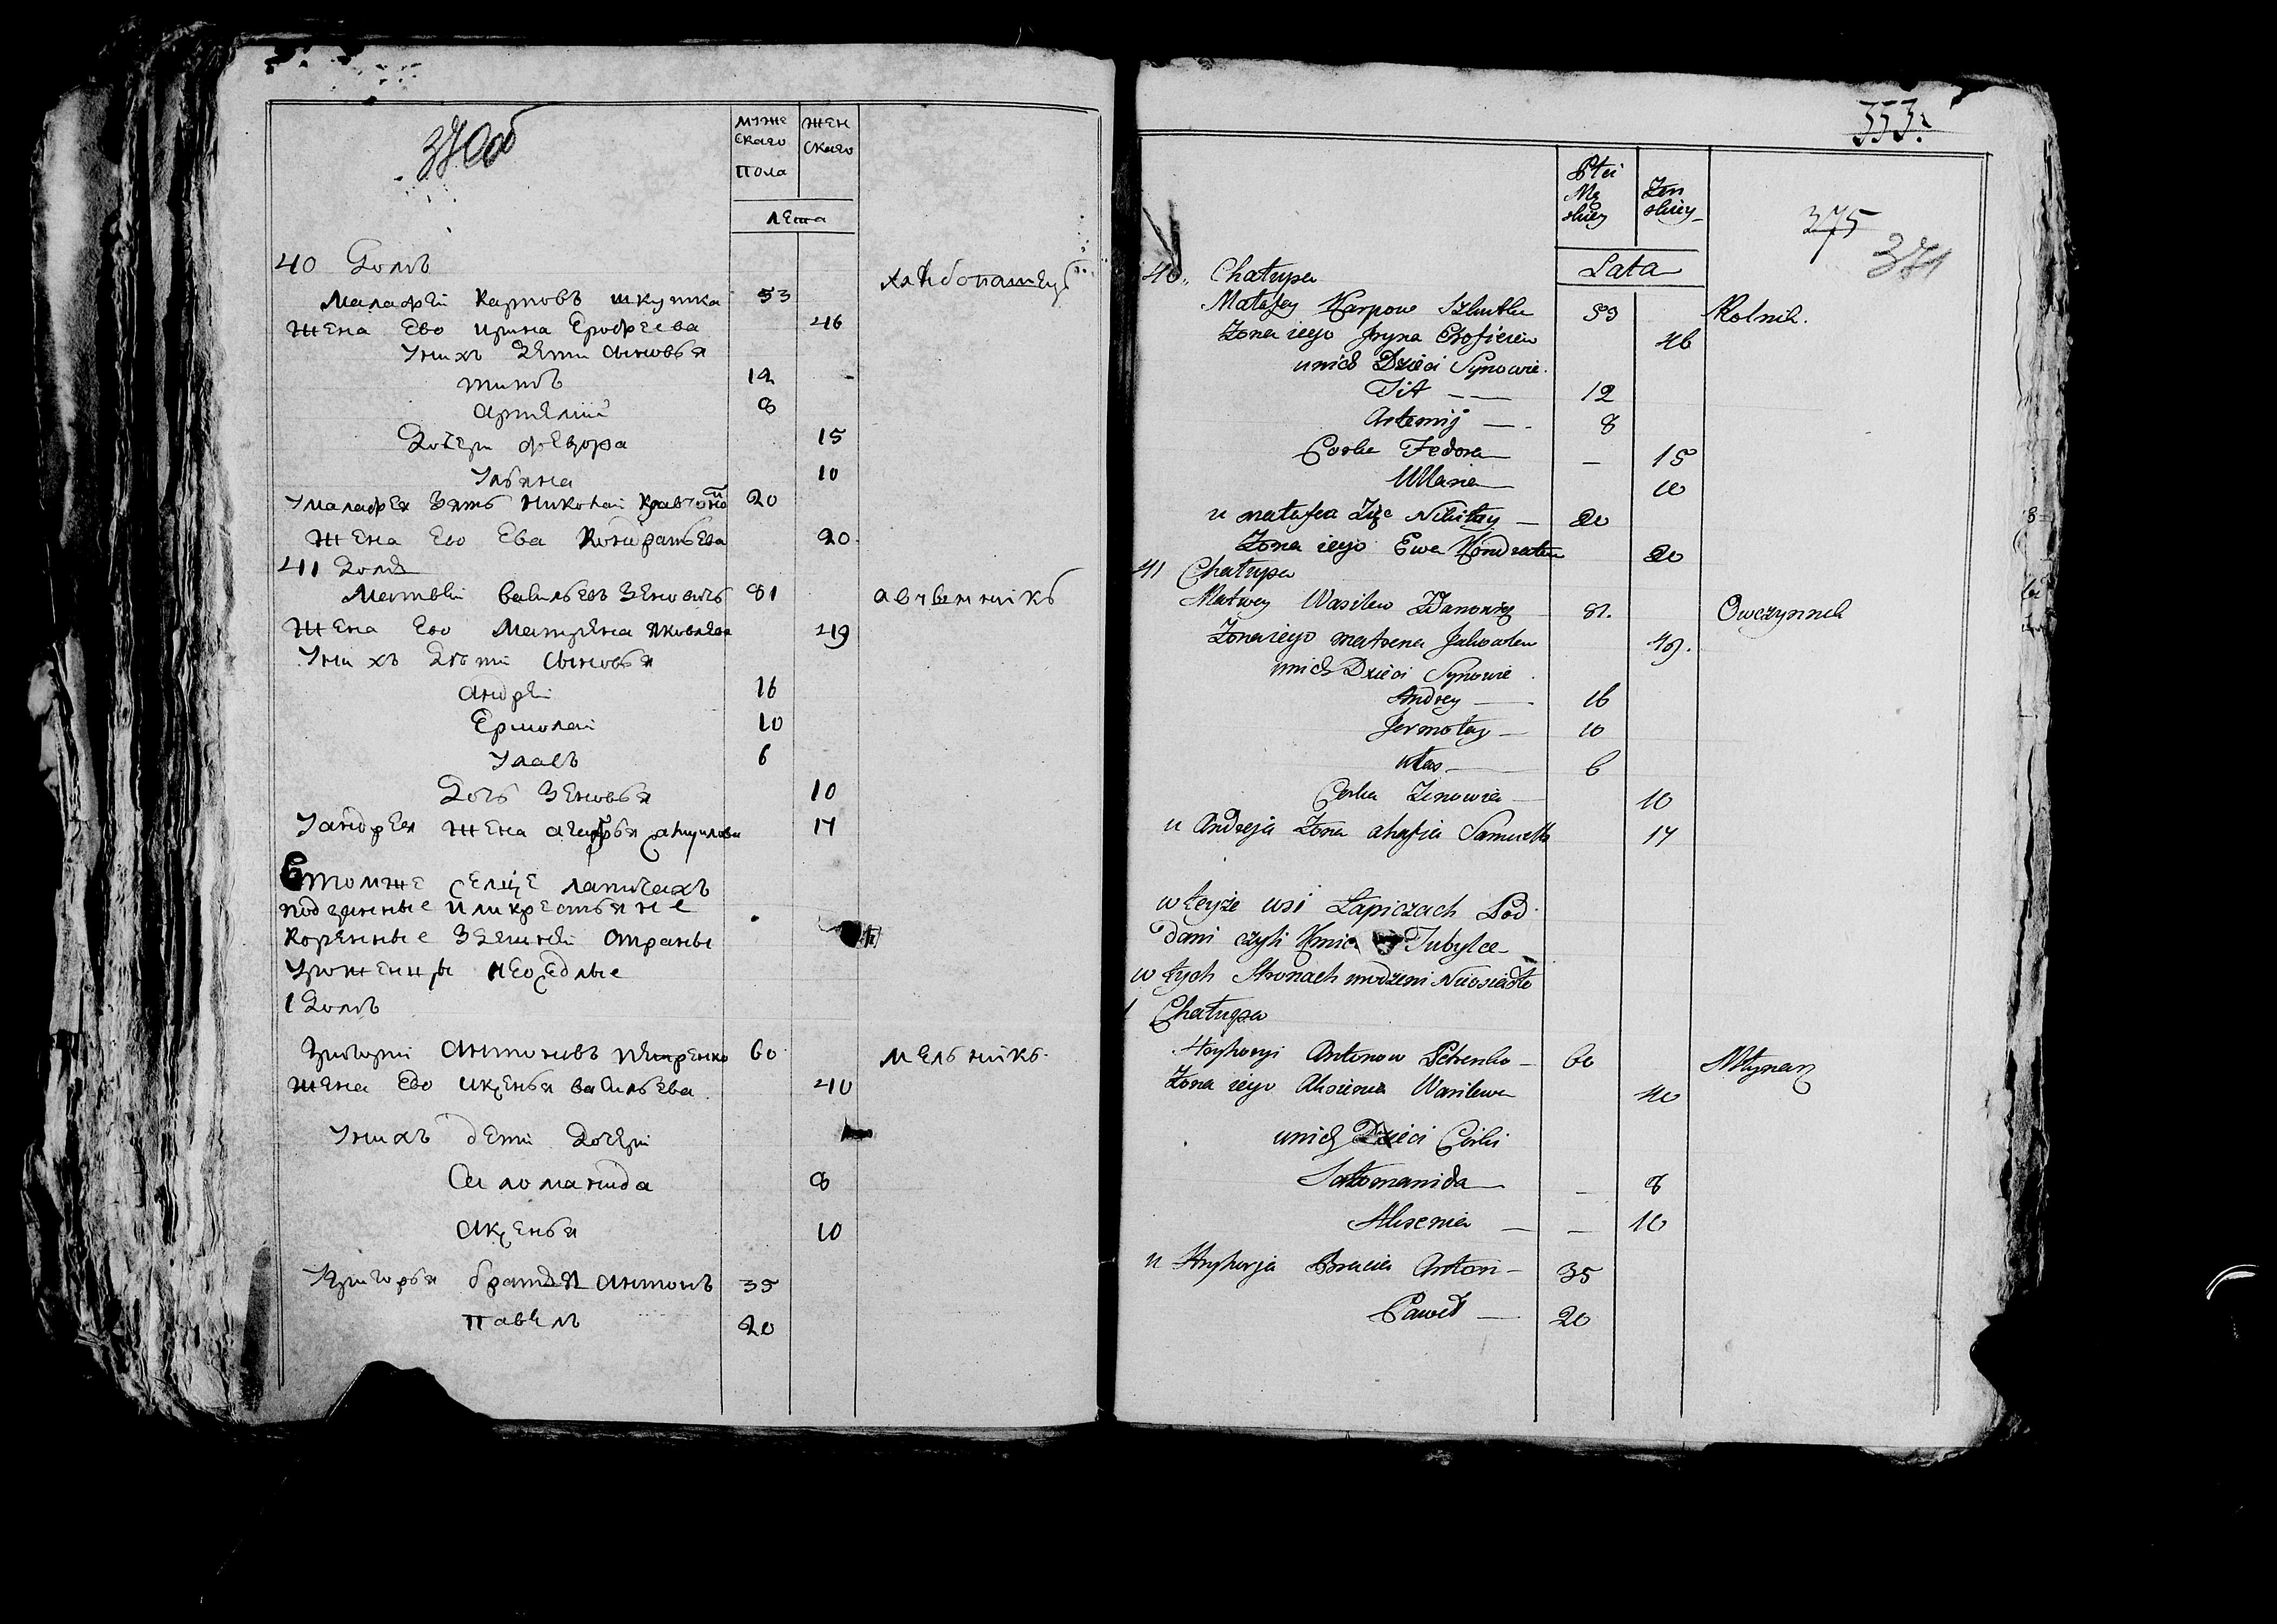 370об
муже
скаго
пола
жен
скаго
лета
40 Домъ
Малафей Карповъ шкутка 53 хлебопашецъ
Жена Ево Ирина Ерофеева 46
Уних Дети Сыновья
титъ 12
Артемий 8
Дочери Федора 15
Ульяна 10
Умалафея Зять Николай 20
Жена Ево Ева Кондратьева 20
41 Домъ
Матвей Васильевъ Зеновичъ 81 авчинникъ
Жена Ево Матрена Яковлева 49
Унихъ Дети Сыновья
Андрей 16
Ермолай 10
Уласъ 6
Дочь Зеновья 10
Уандрея Жена агафья 17
Втомже Селце лапичахъ
подданные или крестьяне
Коренные Здешней Страны
Уроженцы неоседлые
1 Домъ
Григорий Антоновъ петренко 60 мельникъ
Жена Ево Иксенья Васильева 40
Унихъ дети Дочери
Саломанида 8
Аксенья 10
Уригорья братья Антонъ 35
Павелъ 20
353.
375
371
Płci
Mę
skiey
Żen
skiey
Lata
40. Chałupa
Małafey Karpow Szkutka 53 Rolnik.
Żona iego Jryna Erofieiew 46
unich Dzieci Synowie.
Tit 12
Artemij 8
Corka Fedora 15
Ullana 10
u małafea Zięć Nikitay 20
Żona iego Ewa Kondratiew 20
41 Chałupa
Matwey Wasilew Zdanowicz 81. Owczynnik
Żona iego matrena Jakowlew 49.
unich Dzieci Synowie.
Andrey 16
Jermołay 10
Ułas 6
Corka Zenowia 10
u Andreja Żona ahafia 17
w teyże wsi Łapiczach Pod
dani czyli Tubylce
w tych Stronach urodzeni Nieosiadłe
1 Chałupa
Hryhoryi Antonow Petrenko 60 Młynarz
Żona iego Aksienia Wasilewa 40
unich Dzieci Córki
Sałomanida 8
Aksenia 10
u Hryhorja Bracia Anton 35
Paweł 20